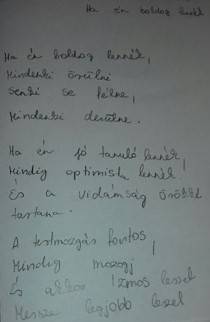 Ha én boldog lennék
Ha én boldog lennék,
Mindenki örülne
Senki se félne,
Mindenki derülne.
Ha én jó tanuló lennék,
Mindig optimista lennék
És a vidámság örökké
tartana.
A testmozgás fontos,
Mindig mozogj
És akkor izmos leszel
Messze legjobb leszel